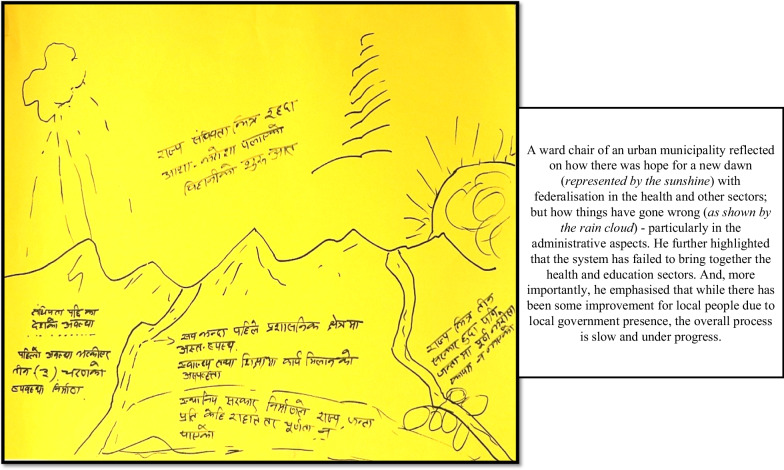 राज्य संघियता भित्र रहदा
आशा-भरोशा पलाएको
बिहानीको शुरु-आत
संघियता पछिका
देशको अवस्था
पहिलो अवस्था भएकोले
तीन (३) चरणको
निर्माण
सब भन्दा पहिले प्रशासनिक क्षेत्रमा
अस्त-व्यस्त
स्वास्थ्य तथा शिक्षामा कार्य मिलानको
राज्य भित्र तीन
सरकार हुदा पनि
जनता मा पूर्ण भरोसा
स्थानिय सरकार निर्माणले राज्य जनता
प्रति केहि राहात तर पूर्णता न
पाएको
A ward chair of an urban municipality reflected
on how there was hope for a new dawn
(represented by the sunshine) with
federalisation in the health and other sectors;
but how things have gone wrong (as shown by
the rain cloud) - particularly in the
administrative aspects. He further highlighted
that the system has failed to bring together the
health and education sectors. And, more
importantly, he emphasised that while there has
been some improvement for local people due to
local government presence, the overall process
is slow and under progress.